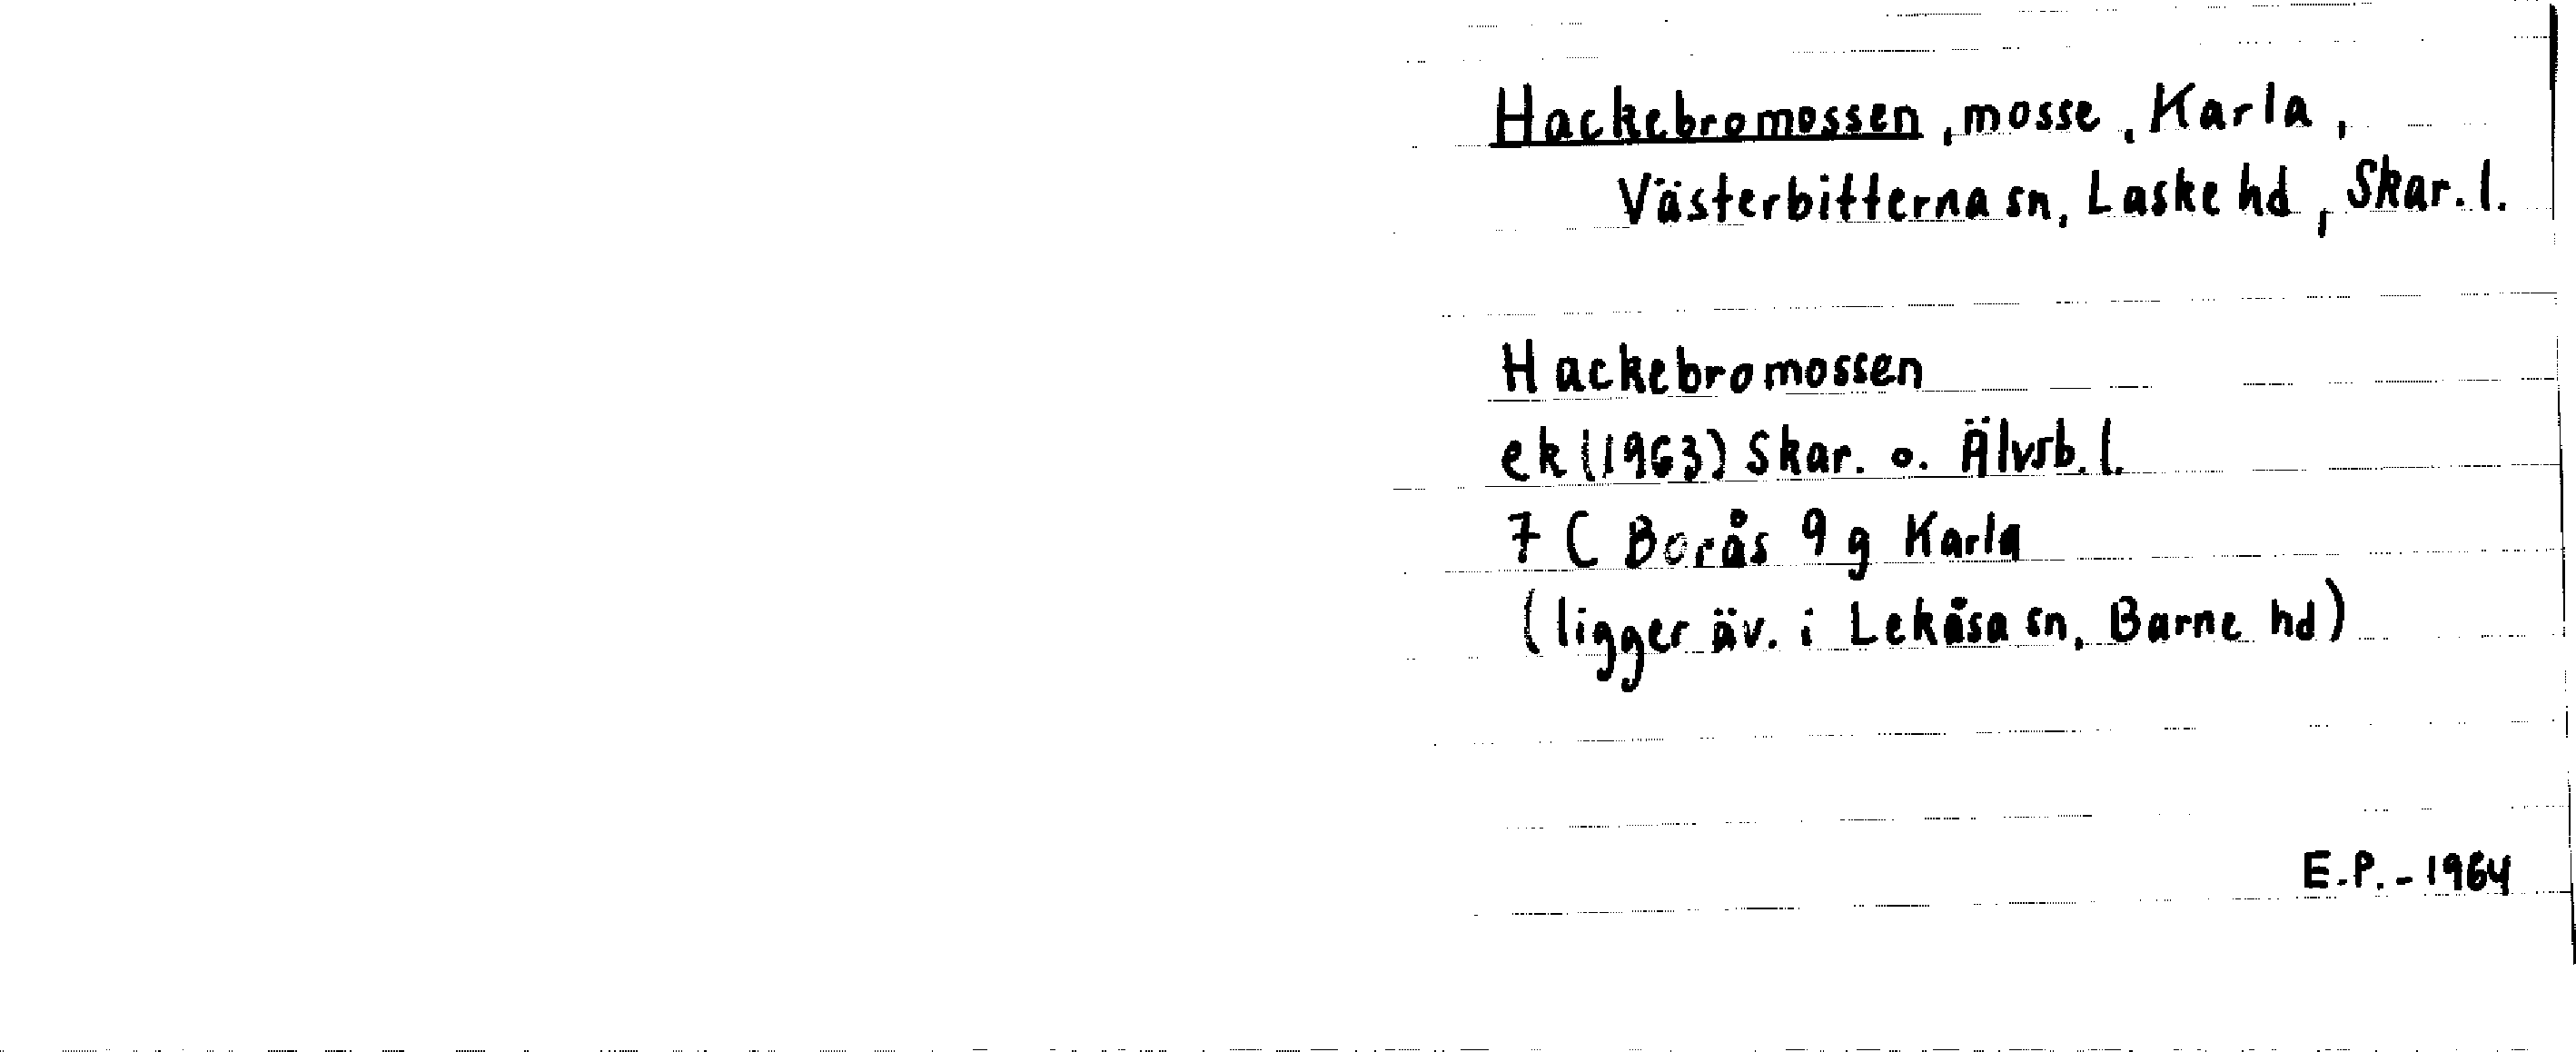 Hackebromossen, mosse, Karla,
Västerbitterna sn, Laske hd, Skar. l.
Hackebromossen
ek (1963) Skar. o. Älvsb. l.
7 C Borås 9 g Karla
(ligger äv. i Lekåsa sn, Barne hd)
E.P. - 1964